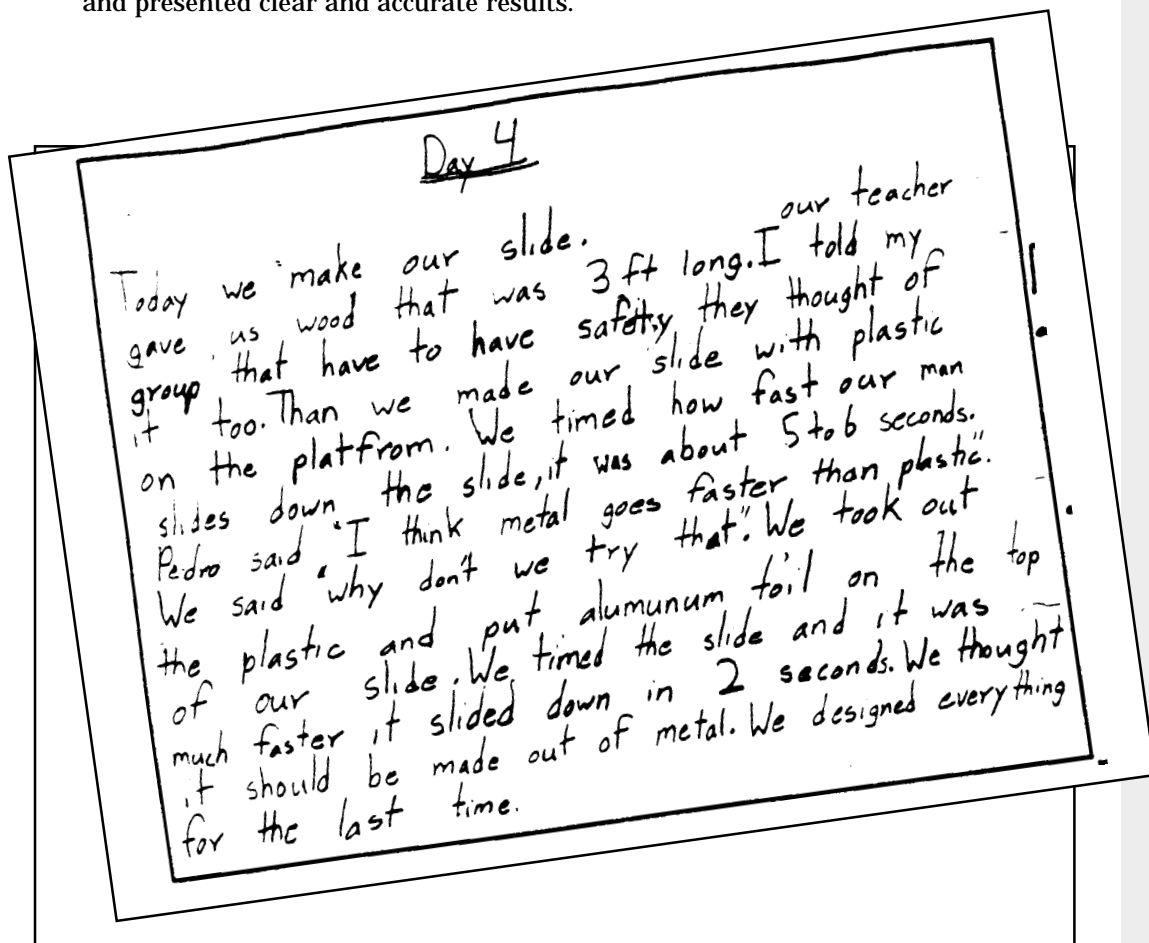 and presented clear and accurate results.
Day 4
Today we make our slide. our teacher
gave us wood that was 3 ft long. I told my
group that have to have safety, they thought of
it too. Than we made our slide with plastic
on the platfrom. We timed how fast our man
slides down the slide, it was about 5 to 6 seconds.
Pedro said "I think metal goes faster than plastic".
We said "why don't we try that". We took out
the plastic and put alumunum foil on the top
of our slide. We timed the slide and it was
much faster it slided down in 2 seconds. We thought
it should be made out of metal. We designed everything
for the last time.